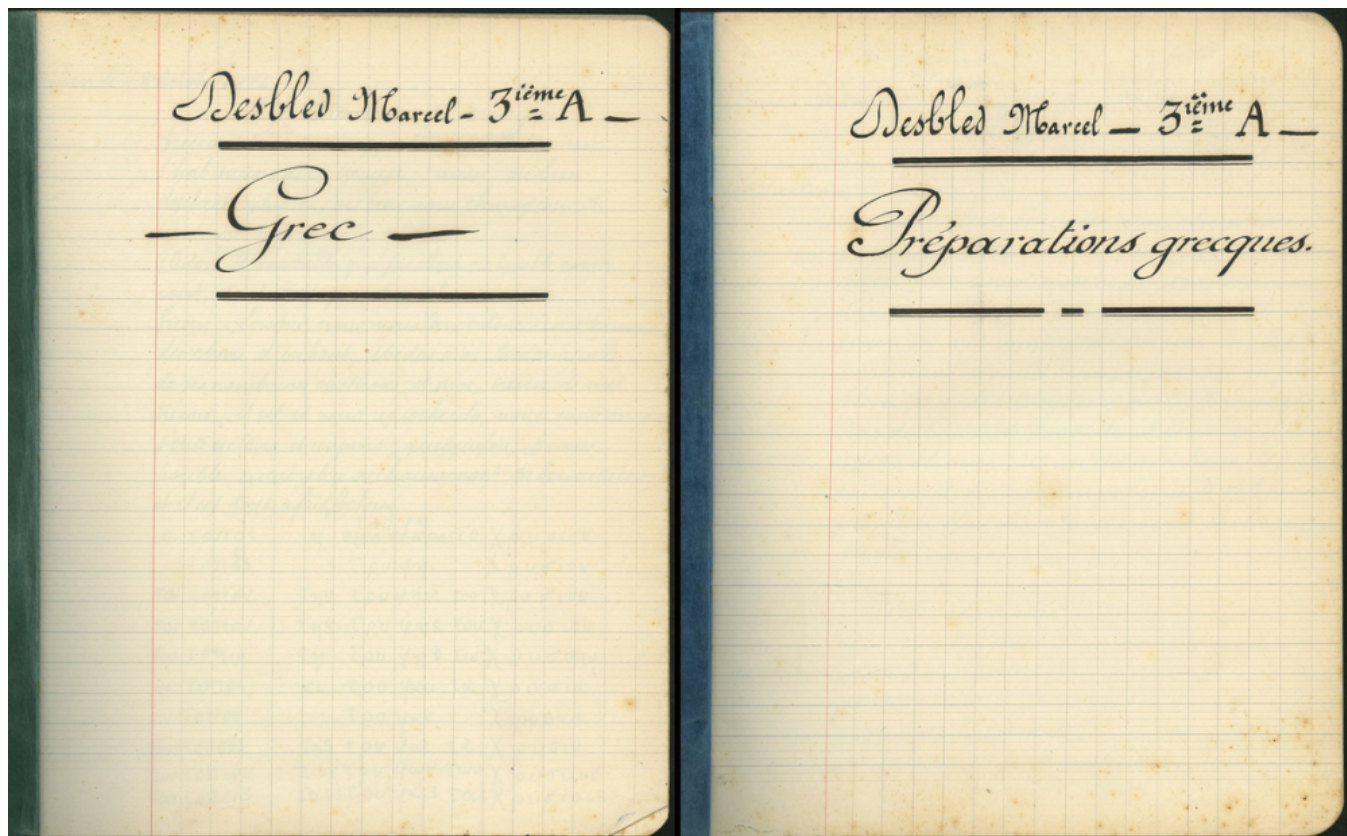 Desbled Marcel - 3ième A —
— Grec —
Desbled Marcel — 3ième A —
Préparations grecques.